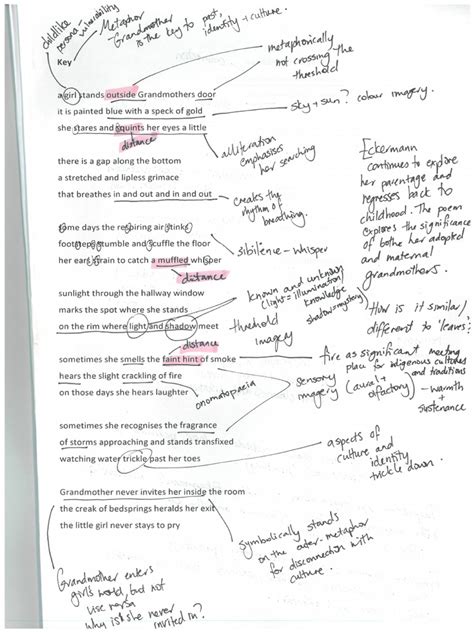 childlike
persona - vulnerability
Metaphor
-Grandmother
is the key to past,
identity + culture.
Key
metaphorically
not crossing the
threshold
a girl stands outside Grandmothers door
it is painted blue with a speck of gold
she stares and squints her eyes a little
distance
sky + sun? colour imagery.
alliteration
emphasises
her searching
there is a gap along the bottom
a stretched and lipless grimace
that breathes in and out and in and out
creates the
rhythm of
breathing.
Eckermann
continues to explore
her parentage and
regresses back to
childhood. The poem
explores the significance
of bothe her adopted
and maternal
grandmothers.
some days the respiring air stinks
footsteps stumble and scuffle the floor
her ears strain to catch a muffled whisper
distance
sibilence - whisper
sunlight through the hallway window
marks the spot where she stands
on the rim where light and shadow meet
known and unknown
(light = illumination
knowledge
shadow = mystery)
threhold
imagery
How is it similar/
different to 'leaves'?
distance
sometimes she smells the faint hint of smoke
hears the slight crackling of fire
on those days she hears laughter
onomatopaeia
sensory
imagery (aural +
olfactory)
fire as significant meeting
place for indigenous cultures
and traditions
- warmth
+
sustenance
sometimes she recognises the fragrance
of storms approaching and stands transfixed
watching water trickle past her toes
aspects of
culture and
identity
trickle down.
Grandmother never invites her inside the room
the creak of bedsprings heralds her exit
the little girl never stays to pry
symbolically stands
on the outer - metaphor
for disconnection with
culture.
Grandmother enters
girls world, but not
vise versa
why is she never
invited in?